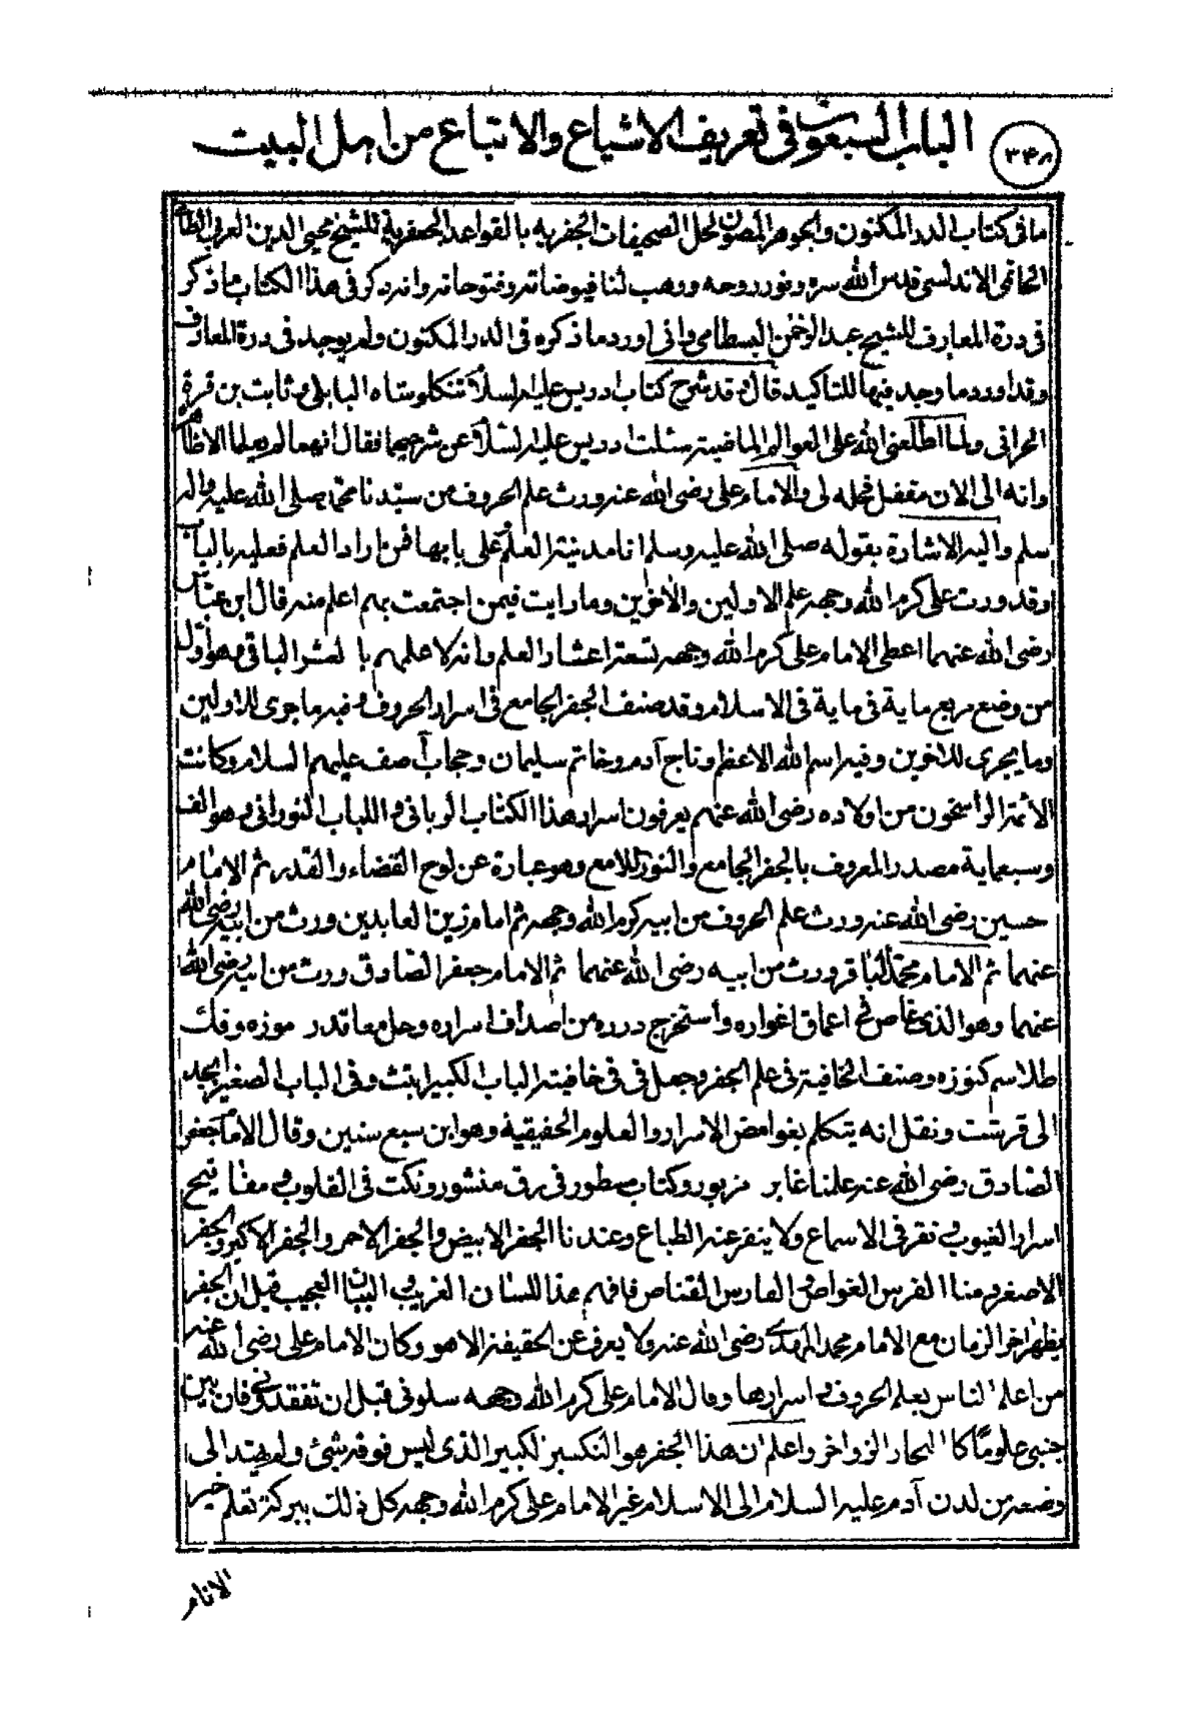 الباب السبعون في تعريف الاشياع والاتباع من اهل البيت
٣٤٨
ما في كتاب الدر المكنون والجوهر المصون لحل الصحيفات الجفريه بالقواعد الجعفرية للشيخ محيى الدين العربي الطا
الحاتمي الاندلسي قدس الله سره ونور روحه ووهب لنا فيوضاته وفتوحاته وانه ذكر في هذا الكتاب ما ذكر
في درة المعارف للشيخ عبد الرحمن البسطامي واني اورد ما ذكره في الدر المكنون ولم يوجد في درة المعارف
وقد اورد ما وجد فيها للتاكيد قال قد شرح كتاب ادريس عليه السلام تنكلوشاه البابلي وثابت بن قرة
الحراني ولما اطلعني الله على العوالم الماضية سئلت ادريس عليه السلام عن شرحهما فقال انهما لم يعلما الا ظا
وانه الى الان مقفل فحله لي والامام علي رضي الله عنه ورث علم الحروف من سيدنا محمد صلى الله عليه واله
سلم واليه الاشارة بقوله صلى الله عليه وسلم انا مدينة العلم وعلى بابها فمن اراد العلم فعليه بالباب
وقد ورث على كرم الله وجهه علم الاولين والاخرين وما رايت فيمن اجتمعت بهم اعلم منه قال ابن عباس
رضى الله عنهما اعطى الامام على كرم الله وجهه تسعة اعشار العلم وانه لاعلمهم بالعشر الباقي وهو اول
من وضع مربع ماية في ماية في الاسلام وقد صنف الجفر الجامع في اسرار الحروف وفيه ما جرى للاولين
وما يجرى للاخرين وفيه اسم الله الاعظم وتاج آدم وخاتم سليمان وحجاب آصف عليهم السلام وكانت
الائمة الراسخون من اولاده رضى الله عنهم يعرفون اسرار هذا الكتاب الرباني واللباب النوراني وهو الف
وسبعماية مصدر المعروف بالجفر الجامع والنور اللامع وهو عبارة عن لوح القضاء والقدر ثم الامام
حسين رضى الله عنه ورث علم الحروف من ابيه كرم الله وجهه ثم امام زين العابدين ورث من ابيه رضى الله
عنهما ثم الامام محمد الباقر ورث من ابيه رضى الله عنهما ثم الامام جعفر الصادق ورث من ابيه رضى الله
عنهما وهو الذى غاص في اعماق اغواره واستخرج درره من اصداف اسراره وحل معاقد رموزه وفك
طلاسم كنوزه وصنف الخافية في علم الجفر وجعل في في خافيته الباب الكبير ابتث وفي الباب الصغير ابجد
الى قرشت ونقل انه يتكلم بغوامض الاسرار والعلوم الحقيقية وهو ابن سبع سنين وقال الامام جعفر
الصادق رضى الله عنه علمنا غابر مزبور وكتاب مسطور في رق منشور ونكت في القلوب ومفاتيح
اسرار الغيوب ونقر في الاسماع ولا ينفر عنه الطباع وعندنا الجفر الابيض والجفر الاحمر والجفر الاكبر والجفر
الاصغر ومنا الفرس الغواص والفارس القناص فافهم هذا اللسان الغريب والبيان العجيب قيل ان الجفر
يظهر اخر الزمان مع الامام محمد المهدي رضى الله عنه ولا يعرف عن الحقيقة الا هو وكان الامام على رضى الله عنه
من اعلم الناس بعلم الحروف واسرارها وقال الامام على كرم الله وجهه سلوني قبل ان تفقدوني فان بين
جنبي علوما كالبحار الزواخر واعلم ان هذا الجفر هو التكسير الكبير الذى ليس فوقه شئ ولم يهتد الى
وضعه من لدن آدم عليه السلام الى الاسلام غير الامام على كرم الله وجهه كل ذلك ببركة تعلم خير
الانام